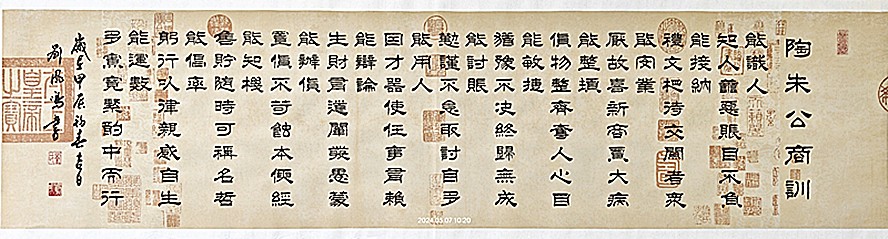 陶朱公商訓
能識人
知人善惡賬目不負
能接納
禮文相待交關者衆
能安業
厭故喜新商賈大病
能整頓
貨物整齊奪人心目
能敏捷
猶豫不決終歸無成
能討賬
勤謹不怠取討自多
能用人
因才器使任事有賴
能辯論
生財有道闡發愚蒙
能辦貨
置貨不苛蝕本便經
能知機
售貯隨時可稱名哲
能倡率
躬行以律親感自生
能運數
多寡寬緊酌中而行
歲在甲辰初春吉日
劉書
2024.05.07 10:20